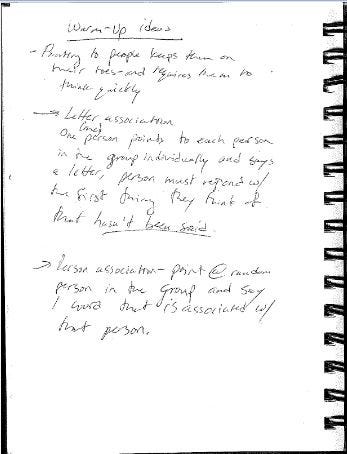 Warm-Up ideas
- Pointing to people keeps them on
their toes- and requires them to
think quickly
→ Letter association
(ind)
One person points to each person
in the group individually and says
a letter, person must respond w/
the first thing they think of
that hasn't been said.
→ Person association- point @ random
person in the group and say
1 word that is associated w/
that person.